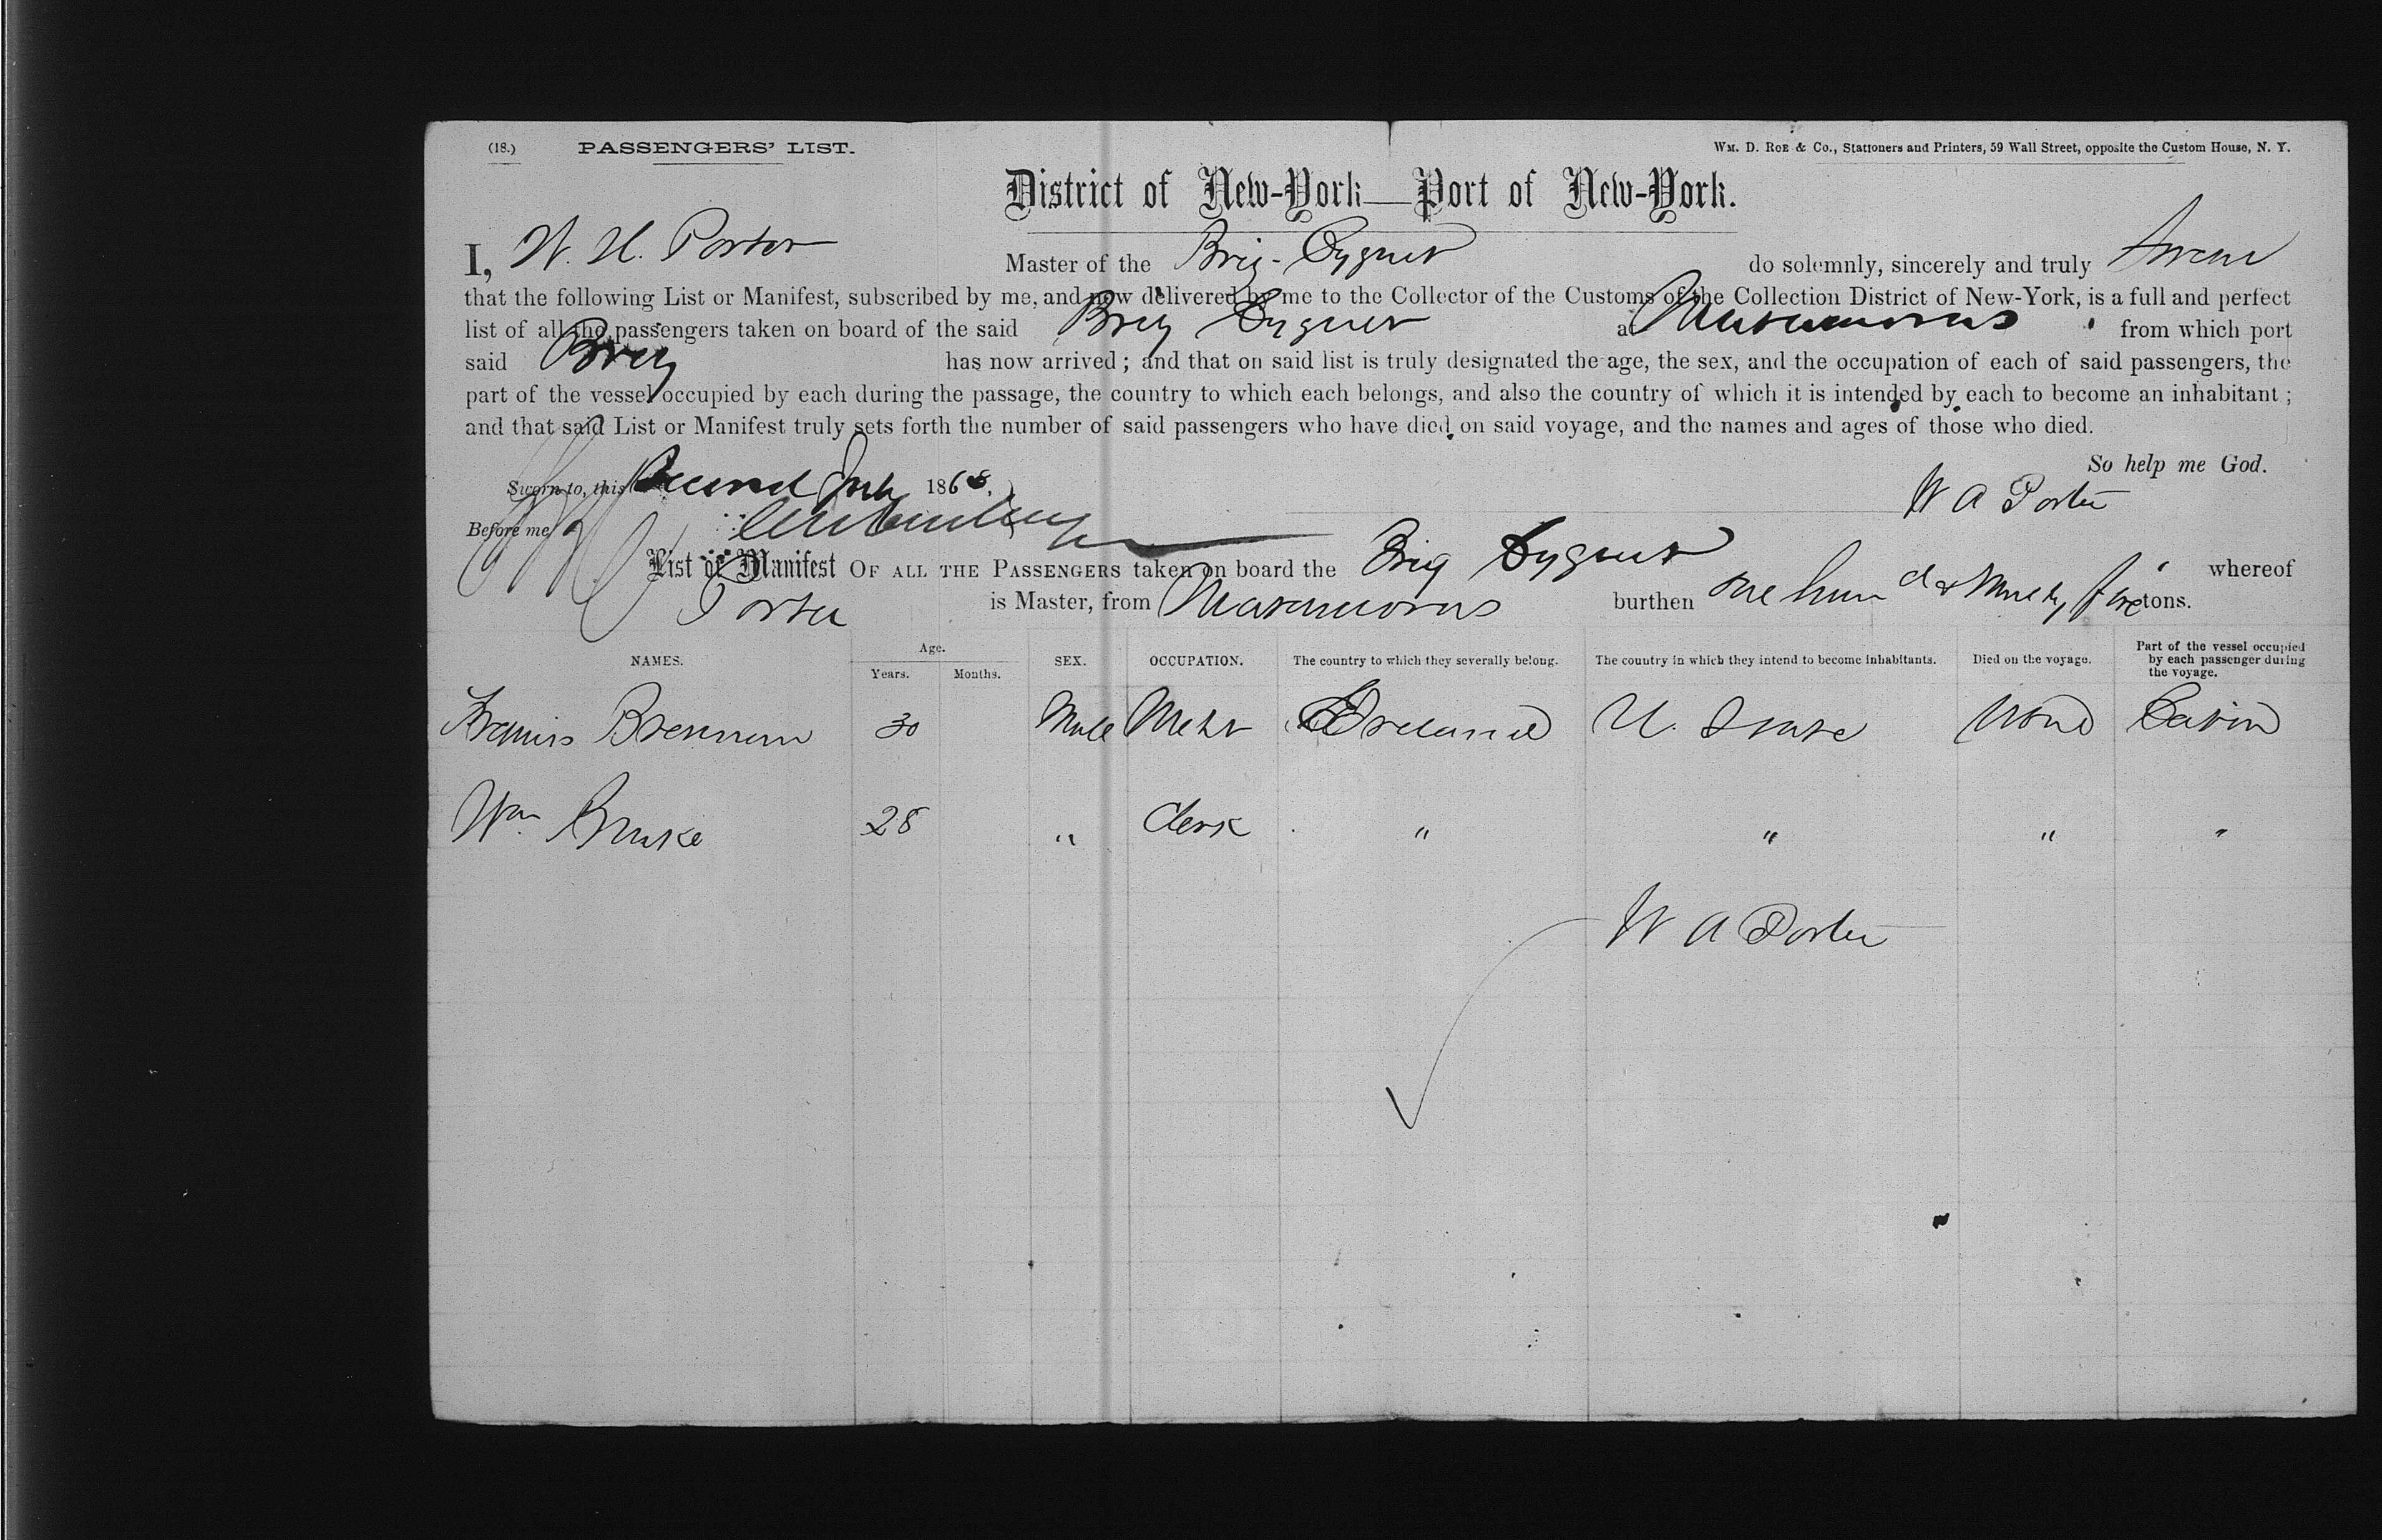 (18.) PASSENGERS' LIST. Wm. D. Roe & Co., Stationers and Printers, 59 Wall Street, opposite the Custom House, N. Y.
District of New-York—Port of New-York.
I, W. H. Porter Master of the Brig - Cygnet do solemnly, sincerely and truly Swear
that the following List or Manifest, subscribed by me, and now delivered by me to the Collector of the Customs of the Collection District of New-York, is a full and perfect
list of all the passengers taken on board of the said Brig Cygnet at Matamoras from which port
said Brig has now arrived ; and that on said list is truly designated the age, the sex, and the occupation of each of said passengers, the
part of the vessel occupied by each during the passage, the country to which each belongs, and also the country of which it is intended by each to become an inhabitant ;
and that said List or Manifest truly sets forth the number of said passengers who have died on said voyage, and the names and ages of those who died.
So help me God.
Sworn to, this Second July 1868. W A Porter
Before me
List or Manifest OF ALL THE PASSENGERS taken on board the Brig Cygnet whereof
Porter is Master, from Matamoras burthen One hund d & Ninety five tons.
NAMES. Age. Years. Months. SEX. OCCUPATION. The country to which they severally belong. The country in which they intend to become inhabitants. Died on the voyage. Part of the vessel occupied by each passenger during the voyage.
Francis Brennan 30 Male Mcht Ireland U. State None Cabin
Wm 28 " Clerk " " " "
W A Porter